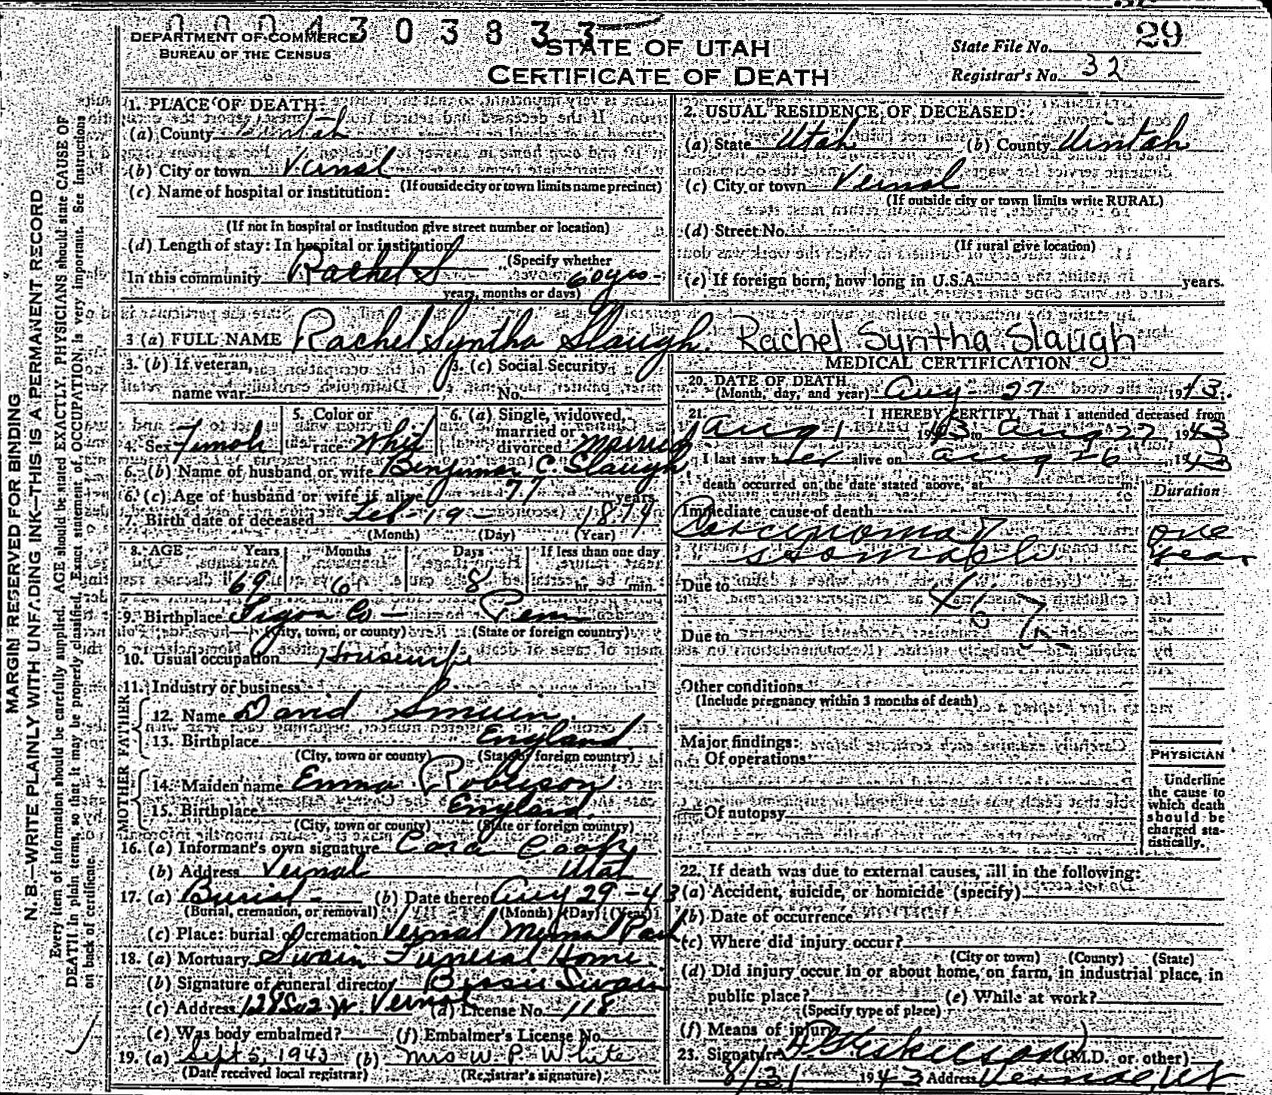 0004303833
DEPARTMENT OF COMMERCE
BUREAU OF THE CENSUS
STATE OF UTAH
CERTIFICATE OF DEATH
State File No. 29
Registrar's No. 32
MARGIN RESERVED FOR BINDING
N. B.—WRITE PLAINLY WITH UNFADING INK—THIS IS A PERMANENT RECORD
Every item of information should be carefully supplied. AGE should be stated EXACTLY. PHYSICIANS should state CAUSE OF
DEATH in plain terms, so that it may be properly classified. Exact statement of OCCUPATION is very important. See instructions
on back of certificate.
1. PLACE OF DEATH:
(a) County Uintah
(b) City or town Vernal
(If outside city or town limits name precinct)
(c) Name of hospital or institution:
(If not in hospital or institution give street number or location)
(d) Length of stay: In hospital or institution
(Specify whether
Rachel S
In this community 60 yrs
years, months or days)
2. USUAL RESIDENCE OF DECEASED:
(a) State Utah (b) County Uintah
(c) City or town Vernal
(If outside city or town limits write RURAL)
(d) Street No.
(If rural give location)
(e) If foreign born, how long in U.S.A. years.
3 (a) FULL NAME Rachel Syntha Slaugh. Rachel Syntha Slaugh
3. (b) If veteran, name war
3. (c) Social Security No.
4. Sex Female 5. Color or race Whit 6. (a) Single, widowed, married or divorced Married
6. (b) Name of husband or wife Benjamin C. Slaugh
6. (c) Age of husband or wife if alive 77 years
7. Birth date of deceased Feb - 19 - 1874
(Month) (Day) (Year)
8. AGE Years Months Days If less than one day
69 6 8 hr. min.
9. Birthplace Tigon Co - Penn
(City, town, or county) (State or foreign country)
10. Usual occupation Housewife
11. Industry or business
FATHER
12. Name David Smuin
13. Birthplace England
(City, town or county) (State or foreign country)
MOTHER
14. Maiden name Emma Robinson
15. Birthplace England
(City, town or county) (State or foreign country)
16. (a) Informant's own signature Cora Cook
(b) Address Vernal Utah
17. (a) Burial - (b) Date thereof Aug 29 - 43
(Burial, cremation, or removal) (Month) (Day) (Year)
(c) Place: burial or cremation Vernal Memorial Park
18. (a) Mortuary Swain Funeral Home
(b) Signature of funeral director Bessie Swain
(c) Address 128 So 2 W. Vernal (d) License No. 118
(e) Was body embalmed? (f) Embalmer's License No.
19. (a) Sept 3, 1943 (b) Mrs W. P. White
(Date received local registrar) (Registrar's signature)
MEDICAL CERTIFICATION
20. DATE OF DEATH
(Month, day, and year) Aug - 27 1943
21. I HEREBY CERTIFY, That I attended deceased from
Aug 1 1943 to Aug 27 1943
I last saw her alive on Aug 26, 1943
death occurred on the date stated above, at m.
Immediate cause of death
Carcinoma of
stomach
Duration
one
year
Due to
Due to
Other conditions
(Include pregnancy within 3 months of death)
Major findings:
Of operations
Of autopsy
PHYSICIAN
Underline
the cause to
which death
should be
charged sta-
tistically.
22. If death was due to external causes, fill in the following:
(a) Accident, suicide, or homicide (specify)
(b) Date of occurrence
(c) Where did injury occur?
(City or town) (County) (State)
(d) Did injury occur in or about home, on farm, in industrial place, in
public place? (e) While at work?
(Specify type of place)
(f) Means of injury
23. Signature (M.D. or other)
8/31 1943 Address Vernal, Ut